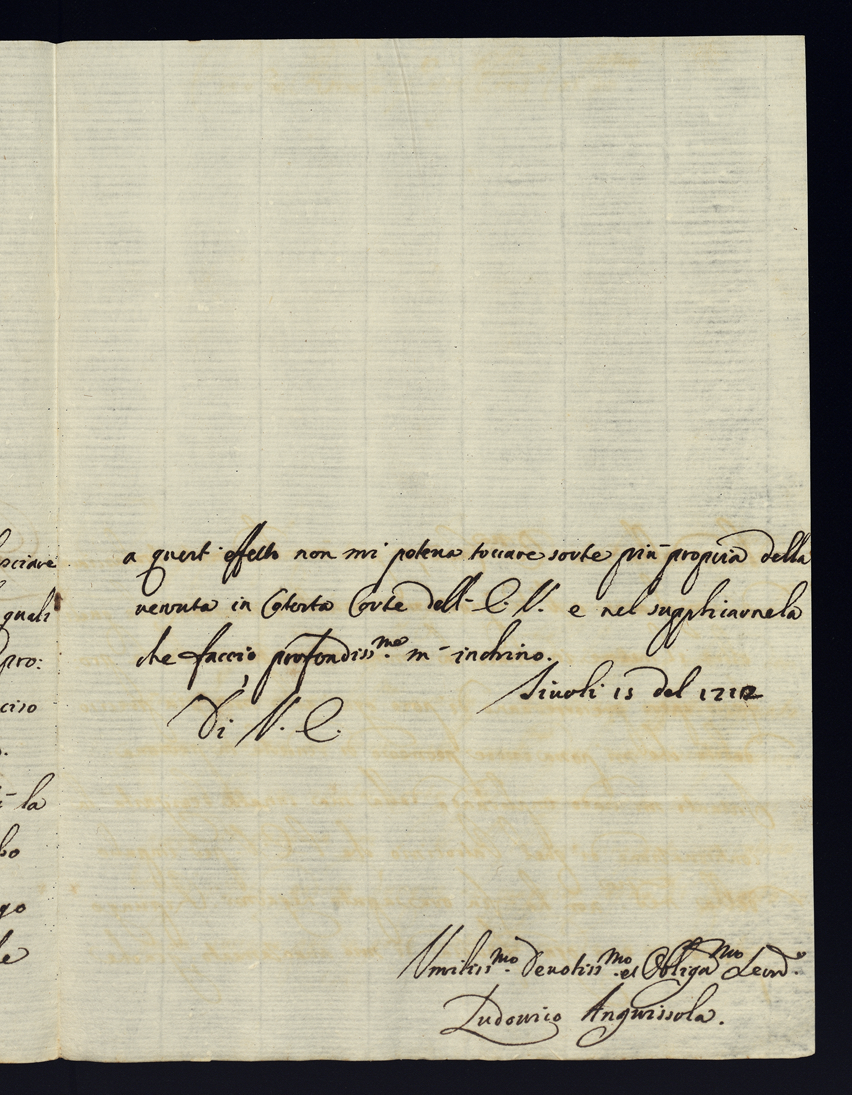 sciare
quali
pro:
ciso
la
bo
go
le
a quest' effetto non mi poteva toccare sorte più propizia della
venuta in Cotesta Corte dell' E. V. e nel supplicarnela
che faccio profondiss.mo m' inchino.
Di V. E. 15 del 1712
Umiliss.mo Devotiss.mo et Obligat.mo
Ludovico Anguissola.